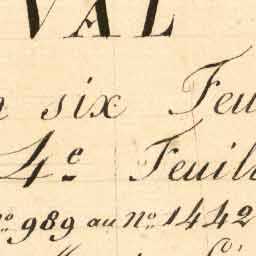 VAL
six Feu
4e Feuil
No 989 au No 1442